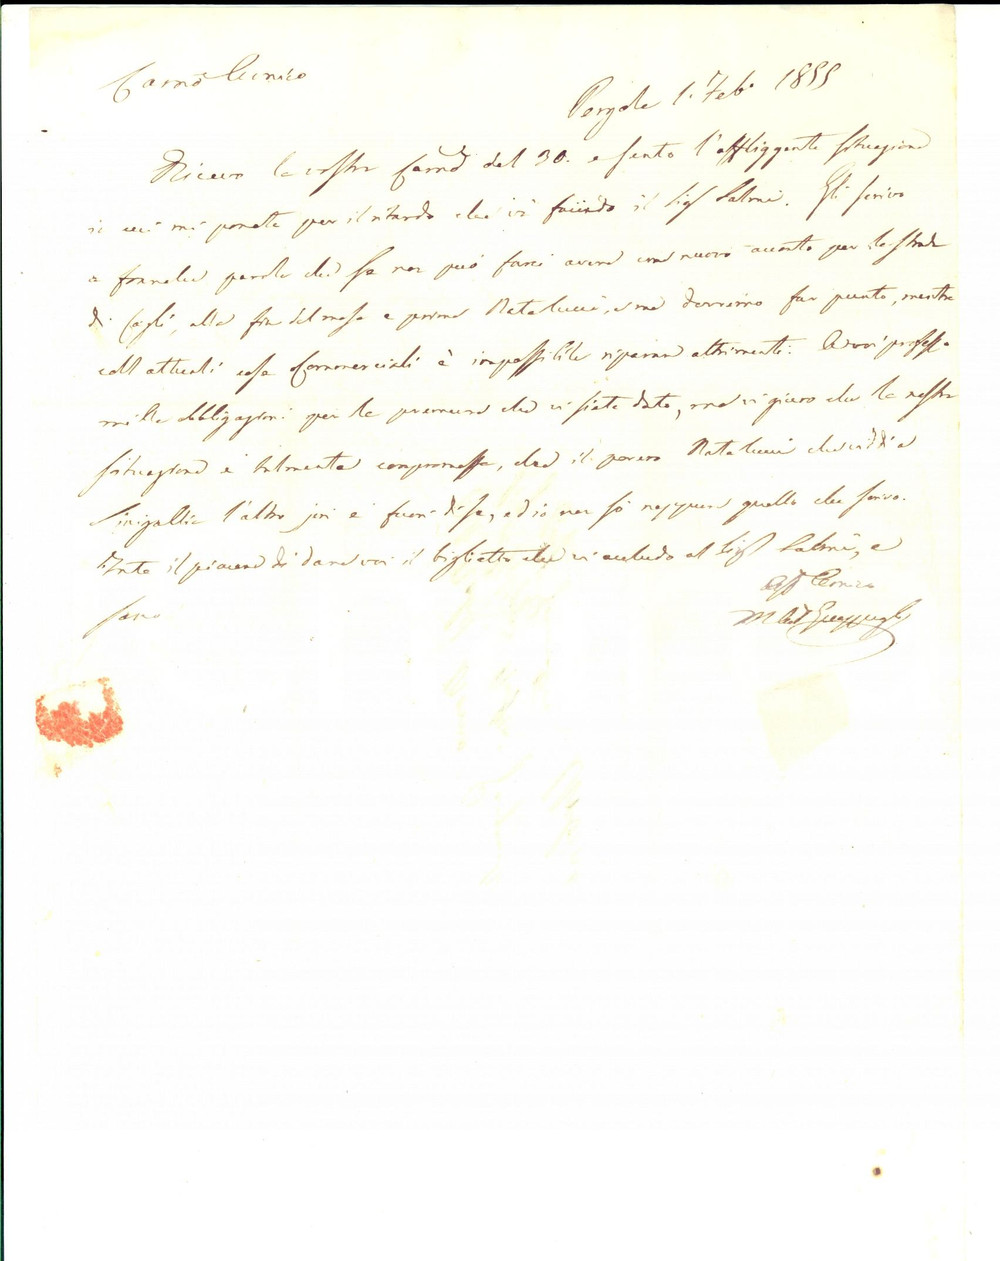 Carmo Amico
Pergola 1. Feb.o 1855
Ricevo la vostra Carma del 30. e sento l'affliggente situazione
in cui mi ponete per il ritardo che và facendo il Sigr Salmi. Gli scrivo
a franche parole che se non può farci avere un nuovo acconto per la strada
di Cagli, alla fin del mese e prima Natalucci, e me dovremo far punto, mentre
coll'attuali cose Commerciali è impossibile riparare altrimenti. A voi professo
mille obbligazioni per la premura che vi siete dato, ma vi giuro che la nostra
situazione è talmente compromessa, che il povero Natalucci che viddi a
Sinigallia l'altro jeri è fuori di se, ed io non sò neppure quello che scrivo.
il piacere di dare voi il biglietto che vi accludo al Sigr Salmi, e
sono
Aff Amico
M Ant